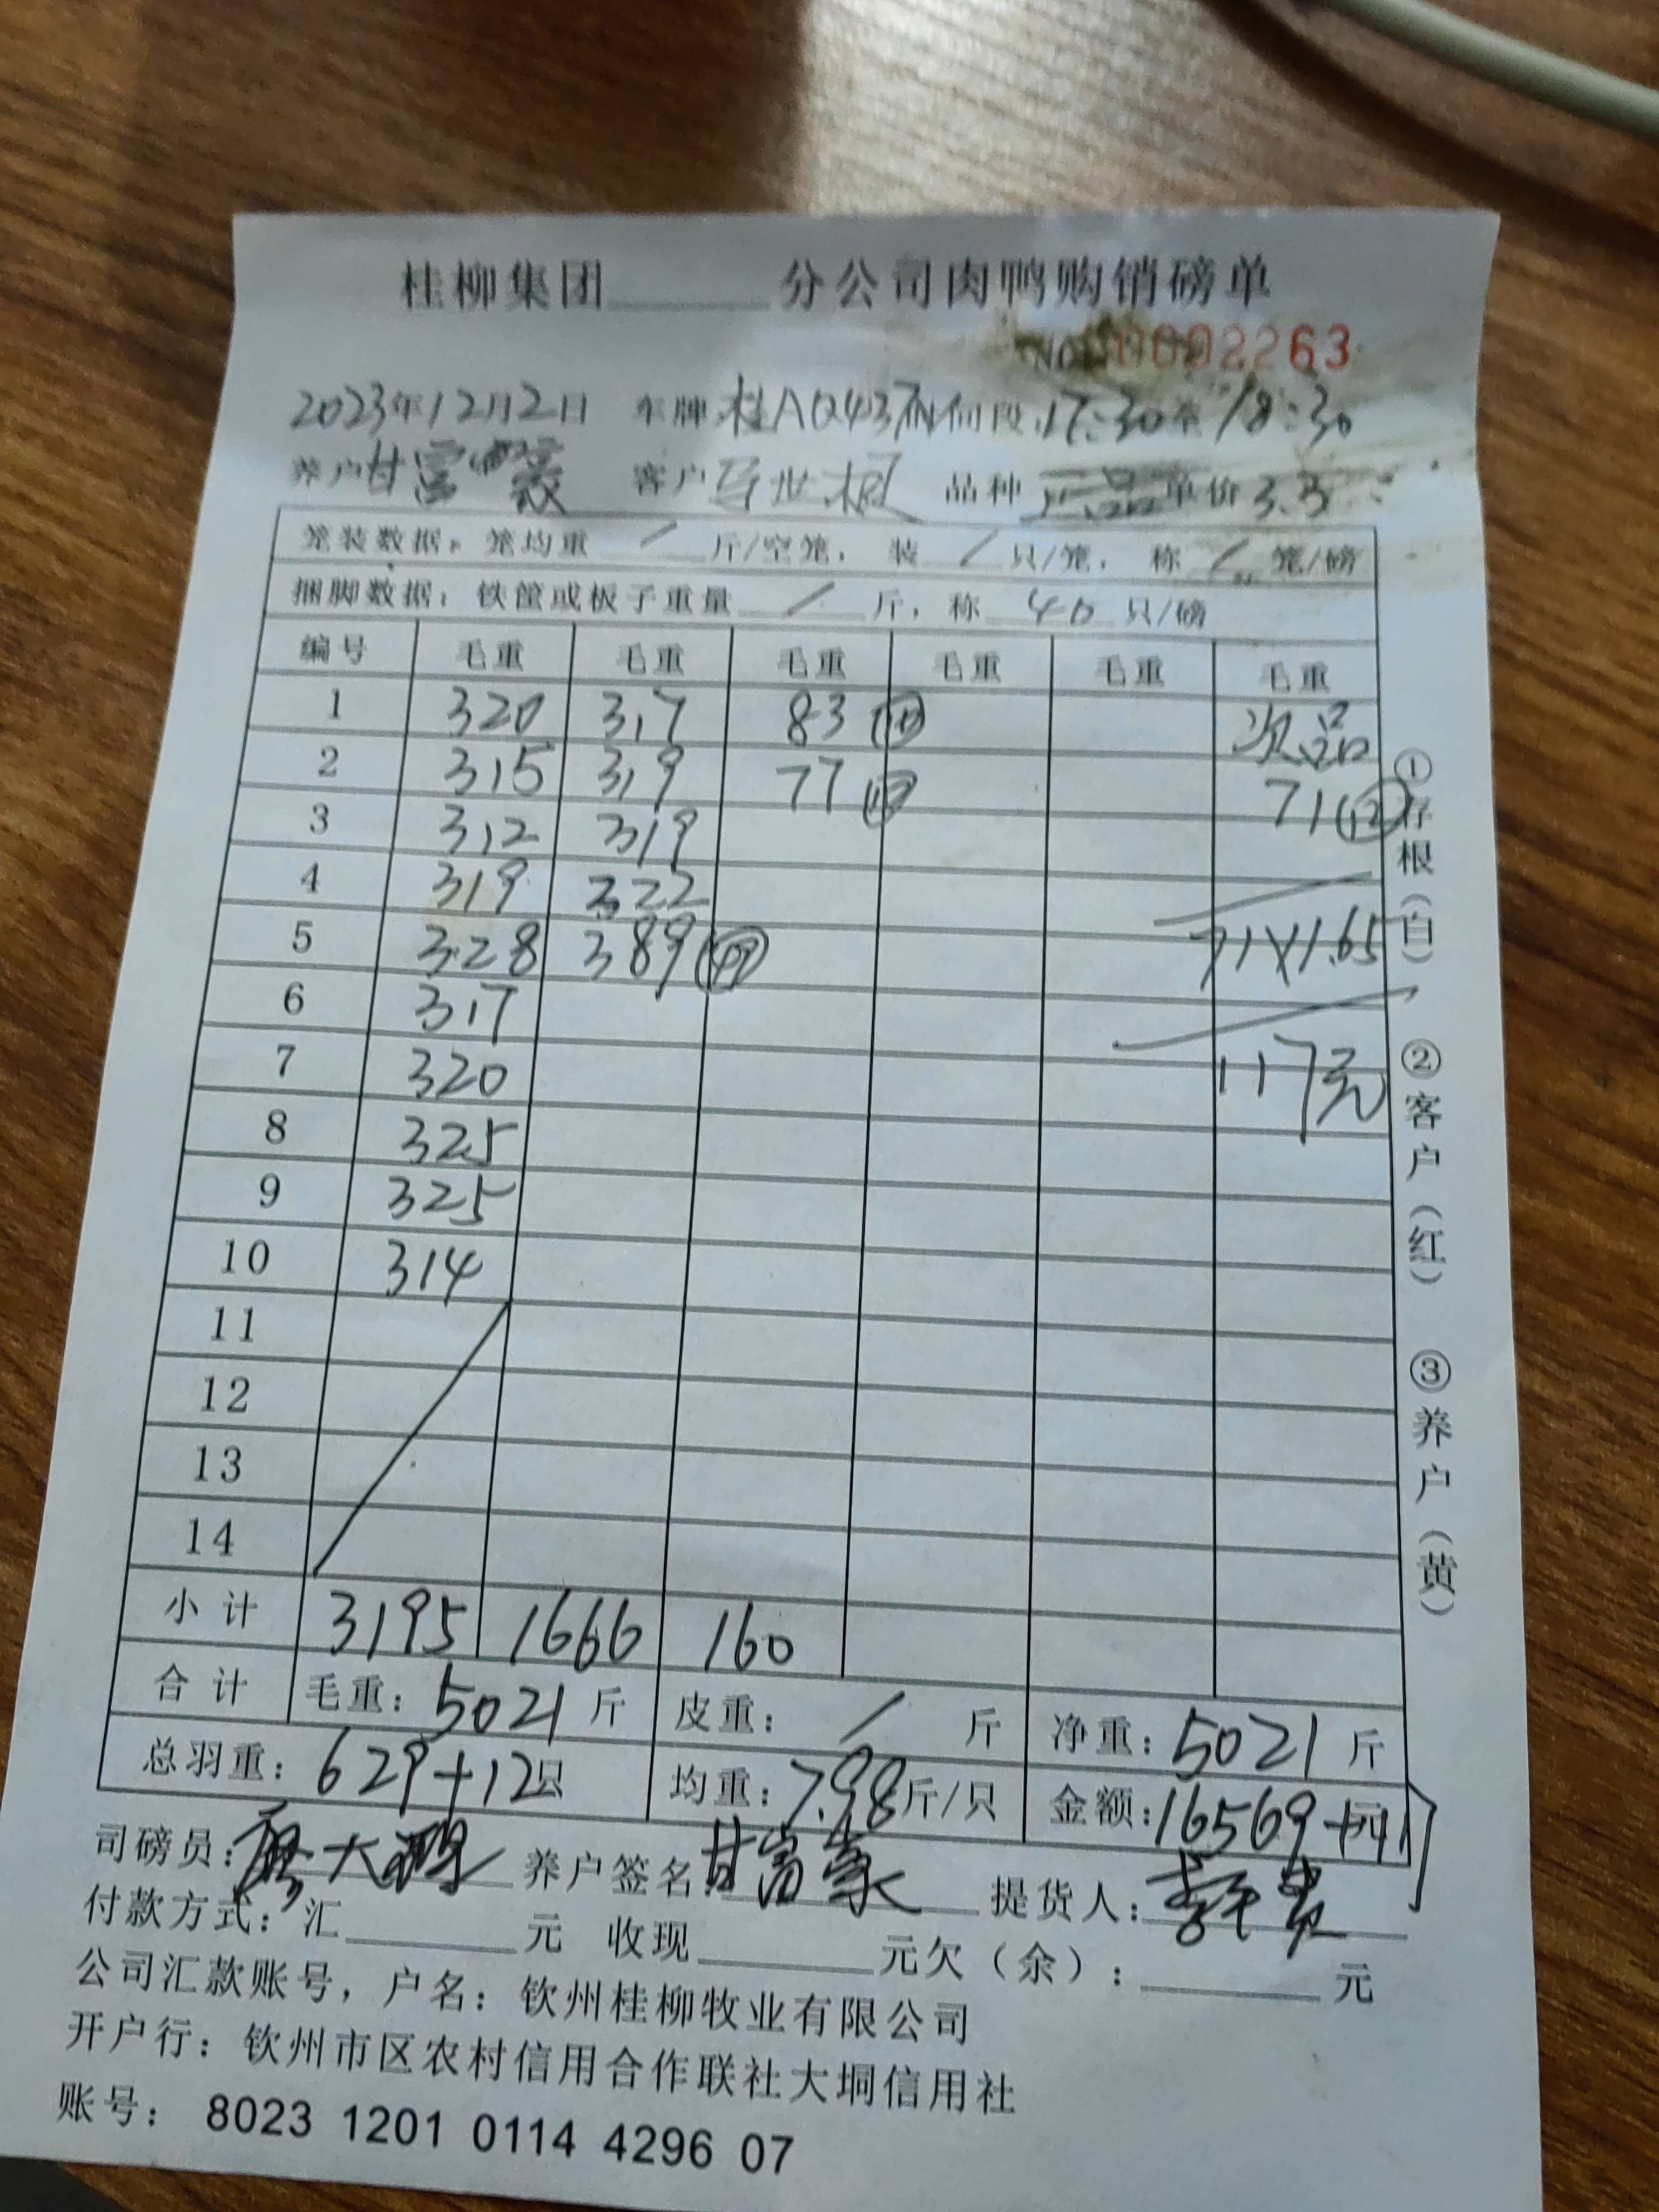 桂柳集团______分公司肉鸭购销磅单
NO 0002263
2023年12月2日 车牌桂A 时间段17:30至18:30
养户甘富豪 客户 品种正品单价3.3
笼装数据:笼均重 / 斤/空笼,装 / 只/笼,称 / 笼/磅
捆脚数据:铁筐或板子重量 / 斤,称 40 只/磅
编号 毛重 毛重 毛重 毛重 毛重 毛重
1 320 317 83 次品
2 315 319 77 71(12)
3 312 319
4 319 322
5 328 389(49) 71×1.65
6 317
7 320 117元
8 325
9 325
10 314
11
12
13
14
小计 3195 1666 160
合计 毛重:5021斤 皮重: / 斤 净重:5021斤
总羽重:629+12只 均重:7.98斤/只 金额:16569+元
司磅员: 养户签名:甘富豪 提货人:
付款方式:汇______元 收现______元欠(余):______元
公司汇款账号,户名:钦州桂柳牧业有限公司
开户行:钦州市区农村信用合作联社大垌信用社
账号: 8023 1201 0114 4296 07
①存根(白) ②客户(红) ③养户(黄)